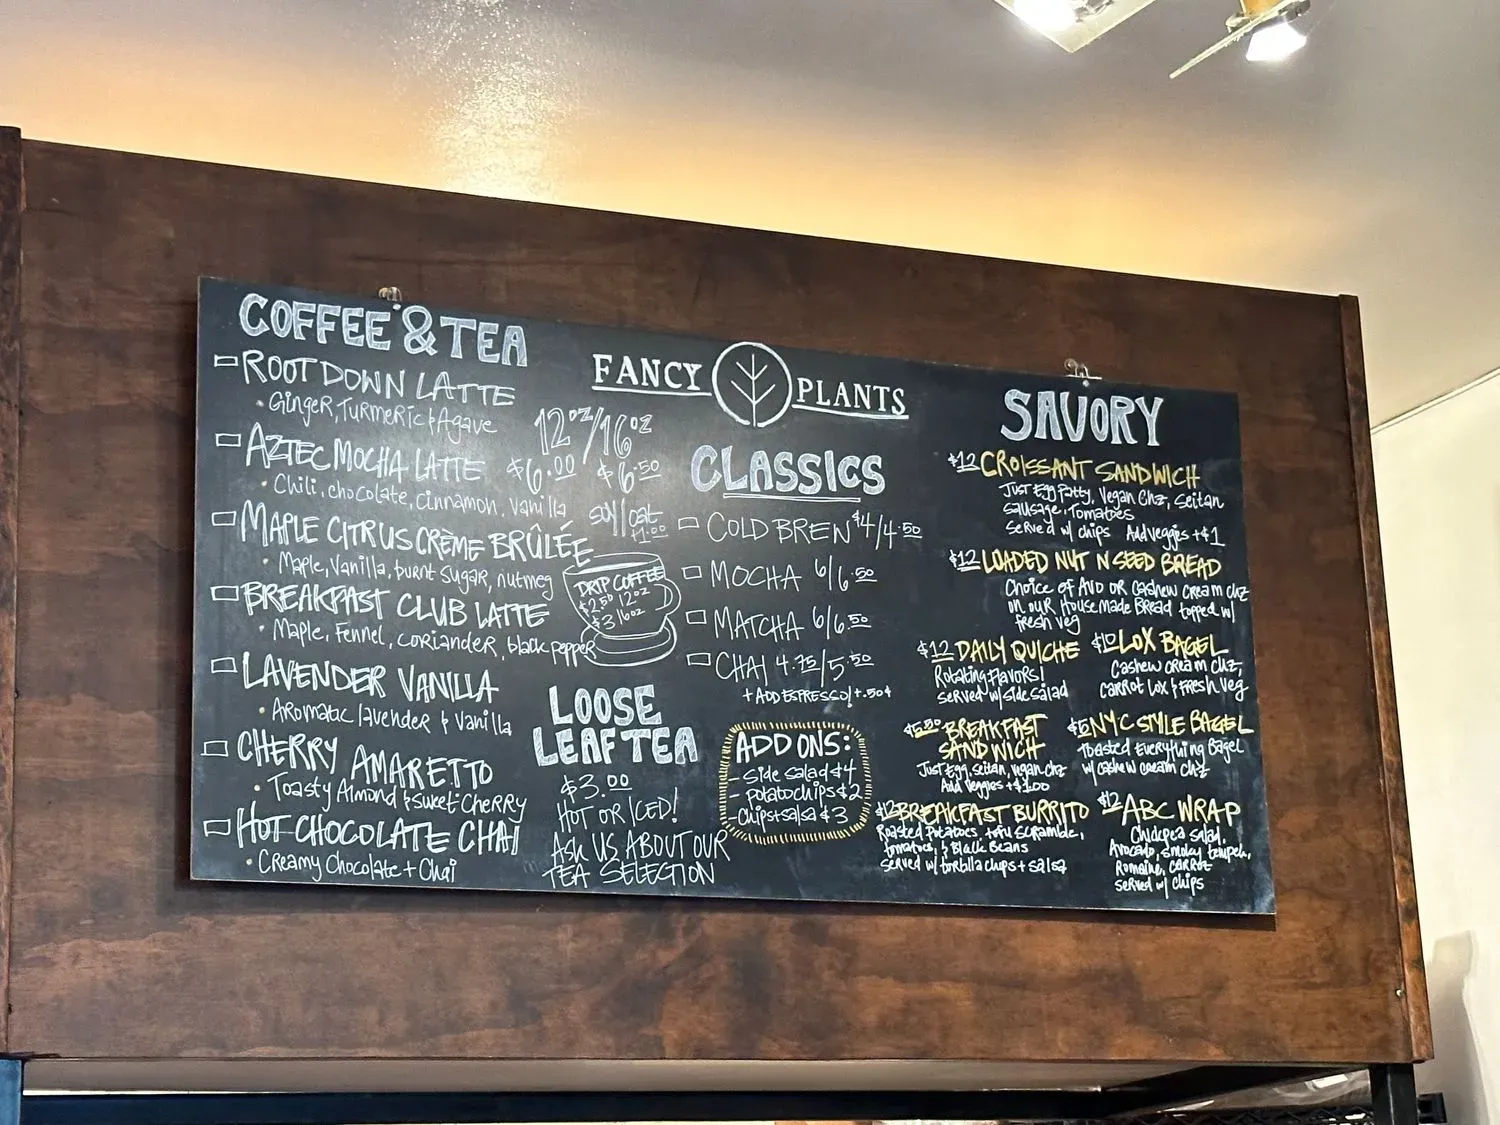 COFFEE & TEA
ROOT DOWN LATTE
• Ginger, Turmeric & Agave
AZTEC MOCHA LATTE
• Chili, chocolate, cinnamon, vanilla
MAPLE CITRUS CRÈME BRÛLÉE
• Maple, Vanilla, burnt sugar, nutmeg
BREAKFAST CLUB LATTE
• Maple, Fennel, coriander, black pepper
LAVENDER VANILLA
• Aromatic lavender & vanilla
CHERRY AMARETTO
• Toasty Almond & Sweet Cherry
HOT CHOCOLATE CHAI
• Creamy Chocolate + Chai
12oz/16oz
$6.00 $6.50
soy/oat
+1.00
DRIP COFFEE
$2.50 12oz
$3 16oz
LOOSE
LEAF TEA
$3.00
HOT OR ICED!
ASK US ABOUT OUR
TEA SELECTION
FANCY PLANTS
CLASSICS
COLD BREW $4/4.50
MOCHA 6/6.50
MATCHA 6/6.50
CHAI 4.75/5.50
+ ADD ESPRESSO/+.50¢
ADD ONS:
- Side salad $4
- potato chips $2
- Chips+salsa $3
SAVORY
$12 CROISSANT SANDWICH
Just Egg Patty, Vegan Chz, Seitan
Sausage, Tomatoes
Served w/ chips Add veggies +$1
$12 LOADED NUT N SEED BREAD
Choice of Avo or Cashew Cream chz
on our Housemade Bread topped w/
fresh veg
$12 DAILY QUICHE
Rotating flavors!
served w/ side salad
$10 LOX BAGEL
Cashew cream chz,
carrot lox & fresh veg
$5.50 BREAKFAST
SANDWICH
Just Egg, seitan, vegan chz
Add Veggies +$1.00
$5 NYC STYLE BAGEL
Toasted Everything Bagel
w/ cashew cream chz
$12 BREAKFAST BURRITO
Roasted Potatoes, tofu scramble,
tomatoes, & Black Beans
served w/ tortilla chips + salsa
$12 ABC WRAP
Chickpea salad,
Avocado, smoky tempeh,
Romaine, carrot
served w/ chips